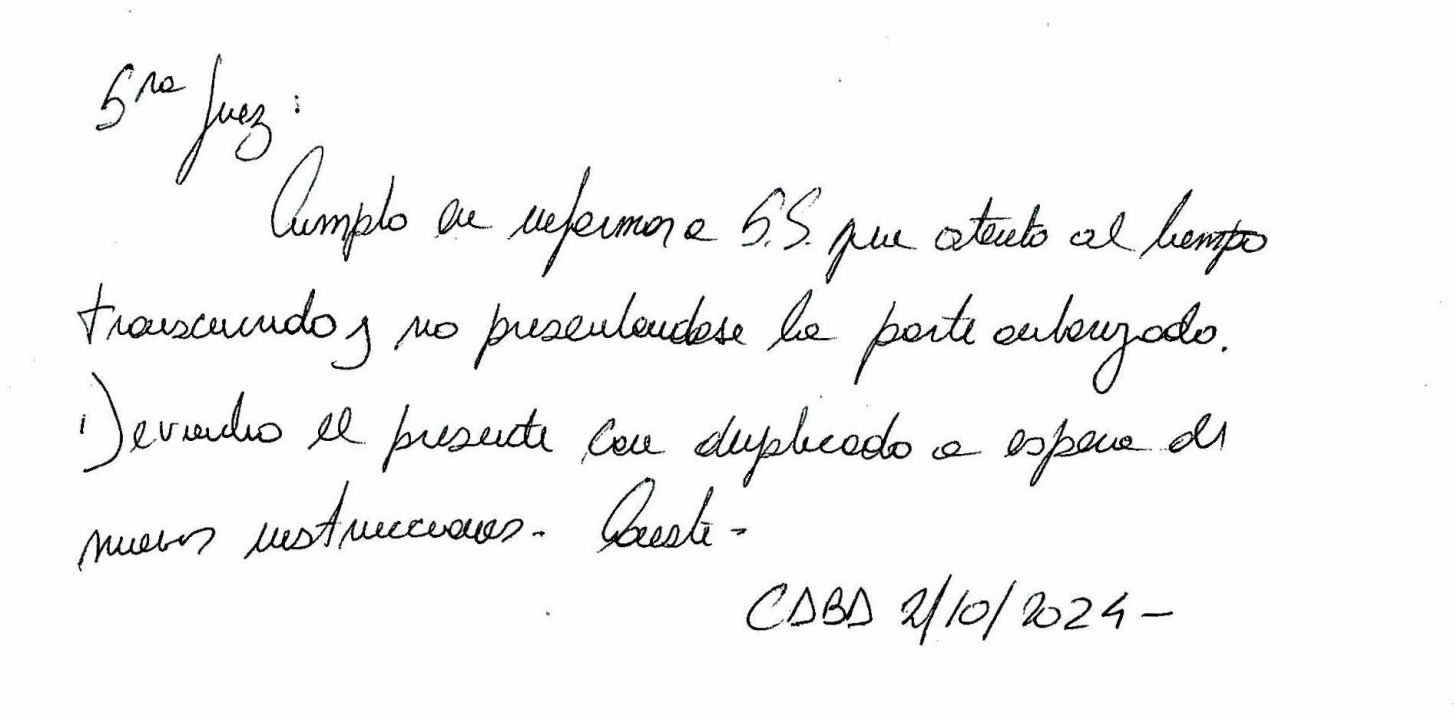 Sra Juez:
Cumplo en informar a S.S. que atento al tiempo
transcurrido y no presentandose la parte autorizada.
Devuelvo el presente con duplicado a espera de
nuevas instrucciones. Conste-
CABA 2/10/2024-